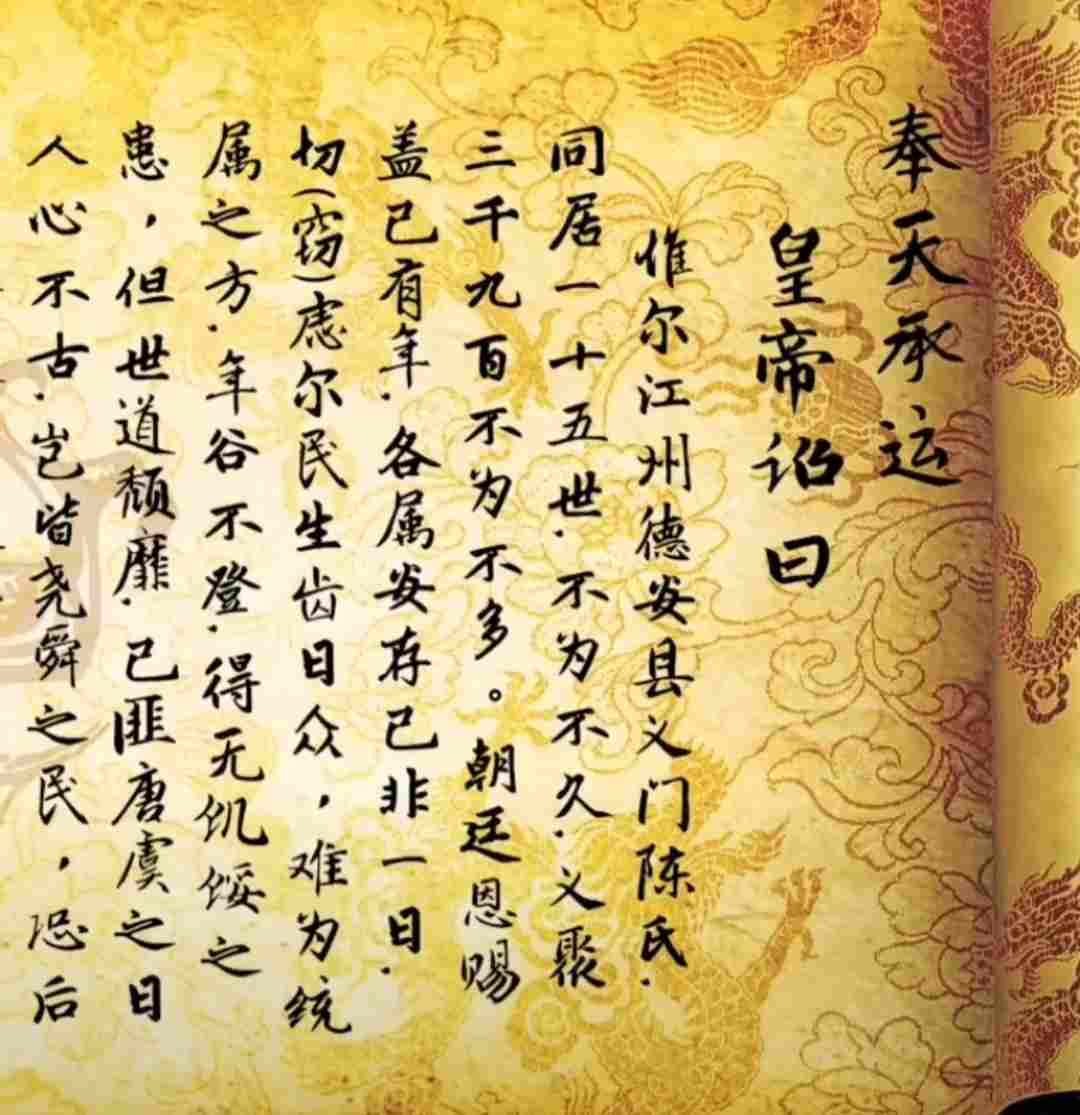 奉天承运
皇帝诏曰
惟尔江州德安县义门陈氏.
同居一十五世.不为不久.义聚
三千九百不为不多。朝廷恩赐
盖已有年.各属安存已非一日.
切(窃)虑尔民生齿日众，难为统
属之方.年谷不登.得无饥馁之
患，但世道颓靡.已匪唐虞之日
人心不古.岂皆尧舜之民，恐后